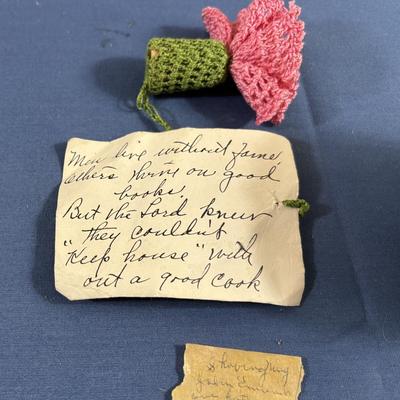 Men live without fame,
others thrive on good
books.
But the Lord knew
they couldn't
"Keep house" with
out a good cook
Shaving mug
from